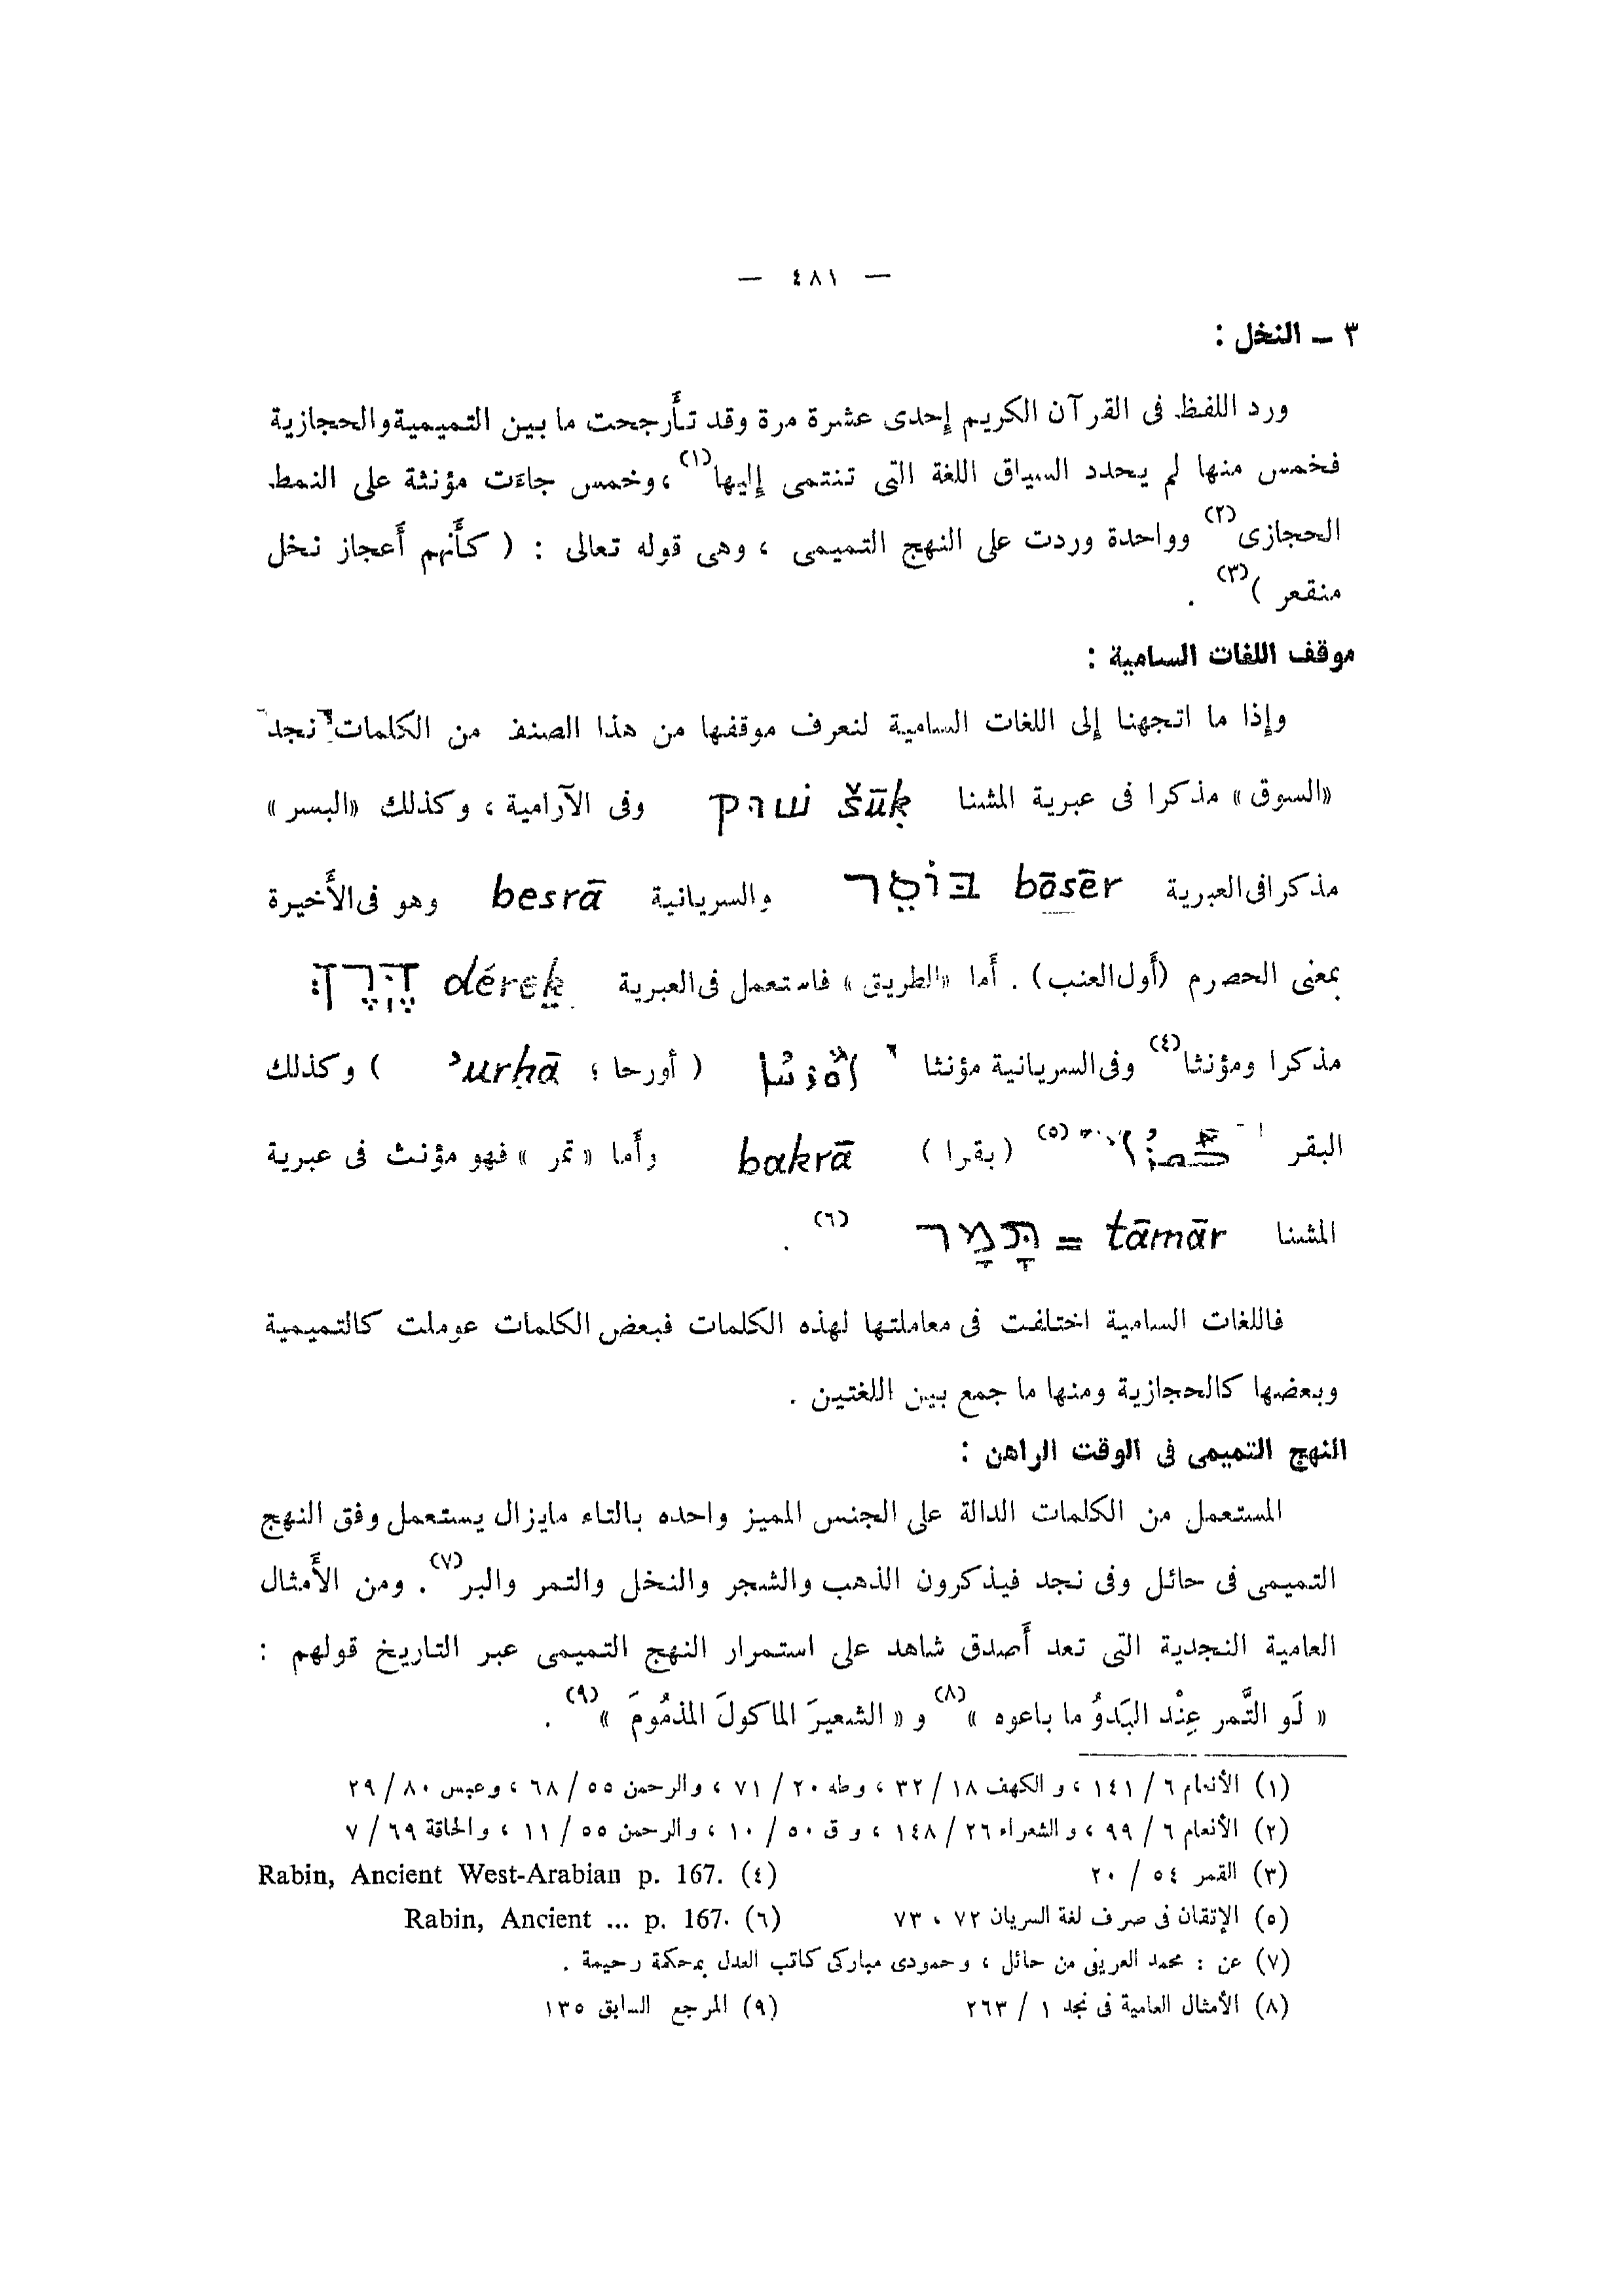 — ٤٨١ —
٣ ــ النخل :
ورد اللفظ فى القرآن الكريم إحدى عشرة مرة وقد تأَرجحت ما بين التميمية والحجازية
فخمس منها لم يحدد السياق اللغة التى تنتمى إليها(١) ، وخمس جاءَت مؤنثة على النمط
الحجازى(٢) وواحدة وردت على النهج التميمى ، وهى قوله تعالى : ( كأَنهم أَعجاز نخل
منقعر )(٣) .
موقف اللغات السامية :
وإذا ما اتجهنا إلى اللغات السامية لنعرف موقفها من هذا الصنف من الكلمات نجد
«السوق» مذكرا فى عبرية المشنا šūḳ שוק وفى الآرامية ، وكذلك «البسر»
مذكرا فى العبرية bōsēr בּוֹסֵר والسريانية besrā وهو فى الأَخيرة
بمعنى الحصرم (أَول العنب) . أَما «الطريق» فاستعمل فى العبرية déreḵ דֶּרֶךְ
مذكرا ومؤنثا(٤) وفى السريانية مؤنثا ܐܘܪܚܐ ( أورحا ؛ ʾurḥā ) وكذلك
البقر (٥) (بقرا ) bakrā وأَما « تمر » فهو مؤنث فى عبرية
المشنا tāmār = תָּמָר (٦) .
فاللغات السامية اختلفت فى معاملتها لهذه الكلمات فبعض الكلمات عوملت كالتميمية
وبعضها كالحجازية ومنها ما جمع بين اللغتين .
النهج التميمى فى الوقت الراهن :
المستعمل من الكلمات الدالة على الجنس المميز واحده بالتاء مايزال يستعمل وفق النهج
التميمى فى حائل وفى نجد فيذكرون الذهب والشجر والنخل والتمر والبر(٧). ومن الأَمثال
العامية النجدية التى تعد أَصدق شاهد على استمرار النهج التميمى عبر التاريخ قولهم :
« لَو التَّمر عِنْد البَدوُ ما باعوه »(٨) و « الشعيرَ الماكولَ المذمُومَ »(٩) .
(١) الأنعام ٦ / ١٤١ ، و الكهف ١٨ / ٣٢ ، وطه ٢٠ / ٧١ ، والرحمن ٥٥ / ٦٨ ، وعبس ٨٠ / ٢٩
(٢) الأنعام ٦ / ٩٩ ، و الشعراء ٢٦ / ١٤٨ ، و ق ٥٠ / ١٠ ، والرحمن ٥٥ / ١١ ، والحاقة ٦٩ / ٧
(٣) القمر ٥٤ / ٢٠ (٤) Rabin, Ancient West-Arabian p. 167.
(٥) الإتقان فى صرف لغة السريان ٧٢ ، ٧٣ (٦) Rabin, Ancient ... p. 167.
(٧) عن : محمد العريفى من حائل ، و حمودى مباركى كاتب العدل بمحكمة رحيمة .
(٨) الأمثال العامية فى نجد ١ / ٢٦٣ (٩) المرجع السابق ١٣٥